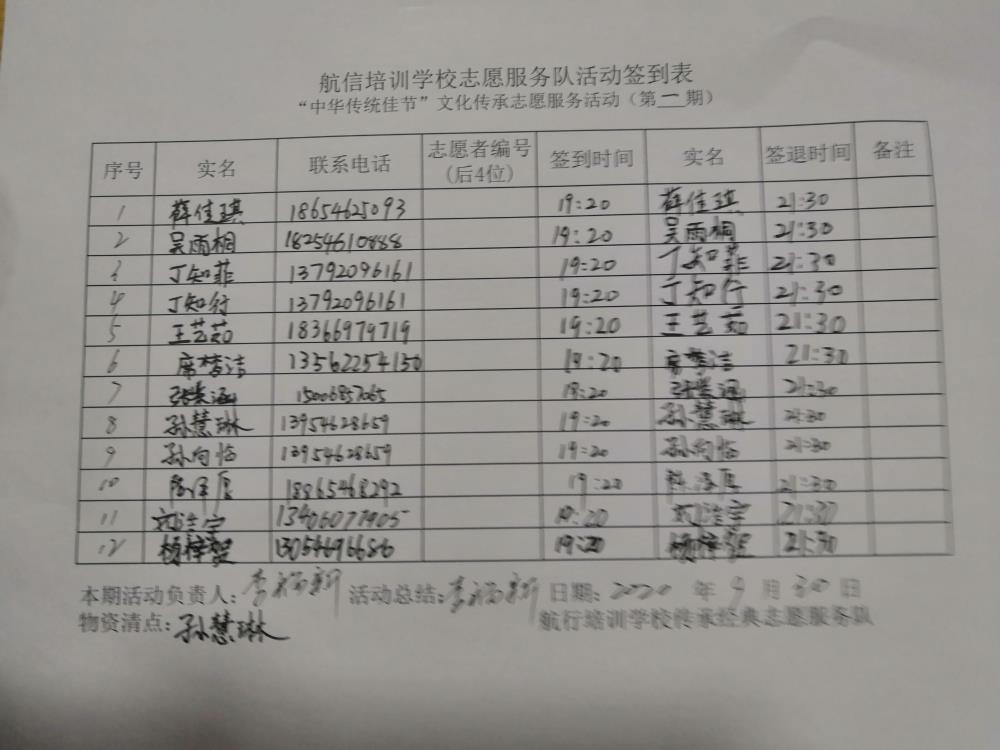 航信培训学校志愿服务队活动签到表
“中华传统佳节”文化传承志愿服务活动（第一期）
序号 实名 联系电话 志愿者编号(后4位) 签到时间 实名 签退时间 备注
1 薛佳琪 18654625093 19:20 薛佳琪 21:30
2 吴雨桐 18254610888 19:20 吴雨桐 21:30
3 丁知菲 13792096161 19:20 丁知菲 21:30
4 丁知行 13792096161 19:20 丁知行 21:30
5 王艺茹 18366979719 19:20 王艺茹 21:30
6 席梦洁 13562254150 19:20 席梦洁 21:30
7 15006857065 19:20 21:30
8 孙慧琳 13954628659 19:20 孙慧琳 21:30
9 孙向临 13954628659 19:20 孙向临 21:30
10 18865468292 19:20 21:30
11 13406077905 19:20 21:30
12 13054696686 19:20 21:30
本期活动负责人：李福新 活动总结：李福新 日期：2020 年 9 月 30 日
物资清点：孙慧琳 航行培训学校传承经典志愿服务队